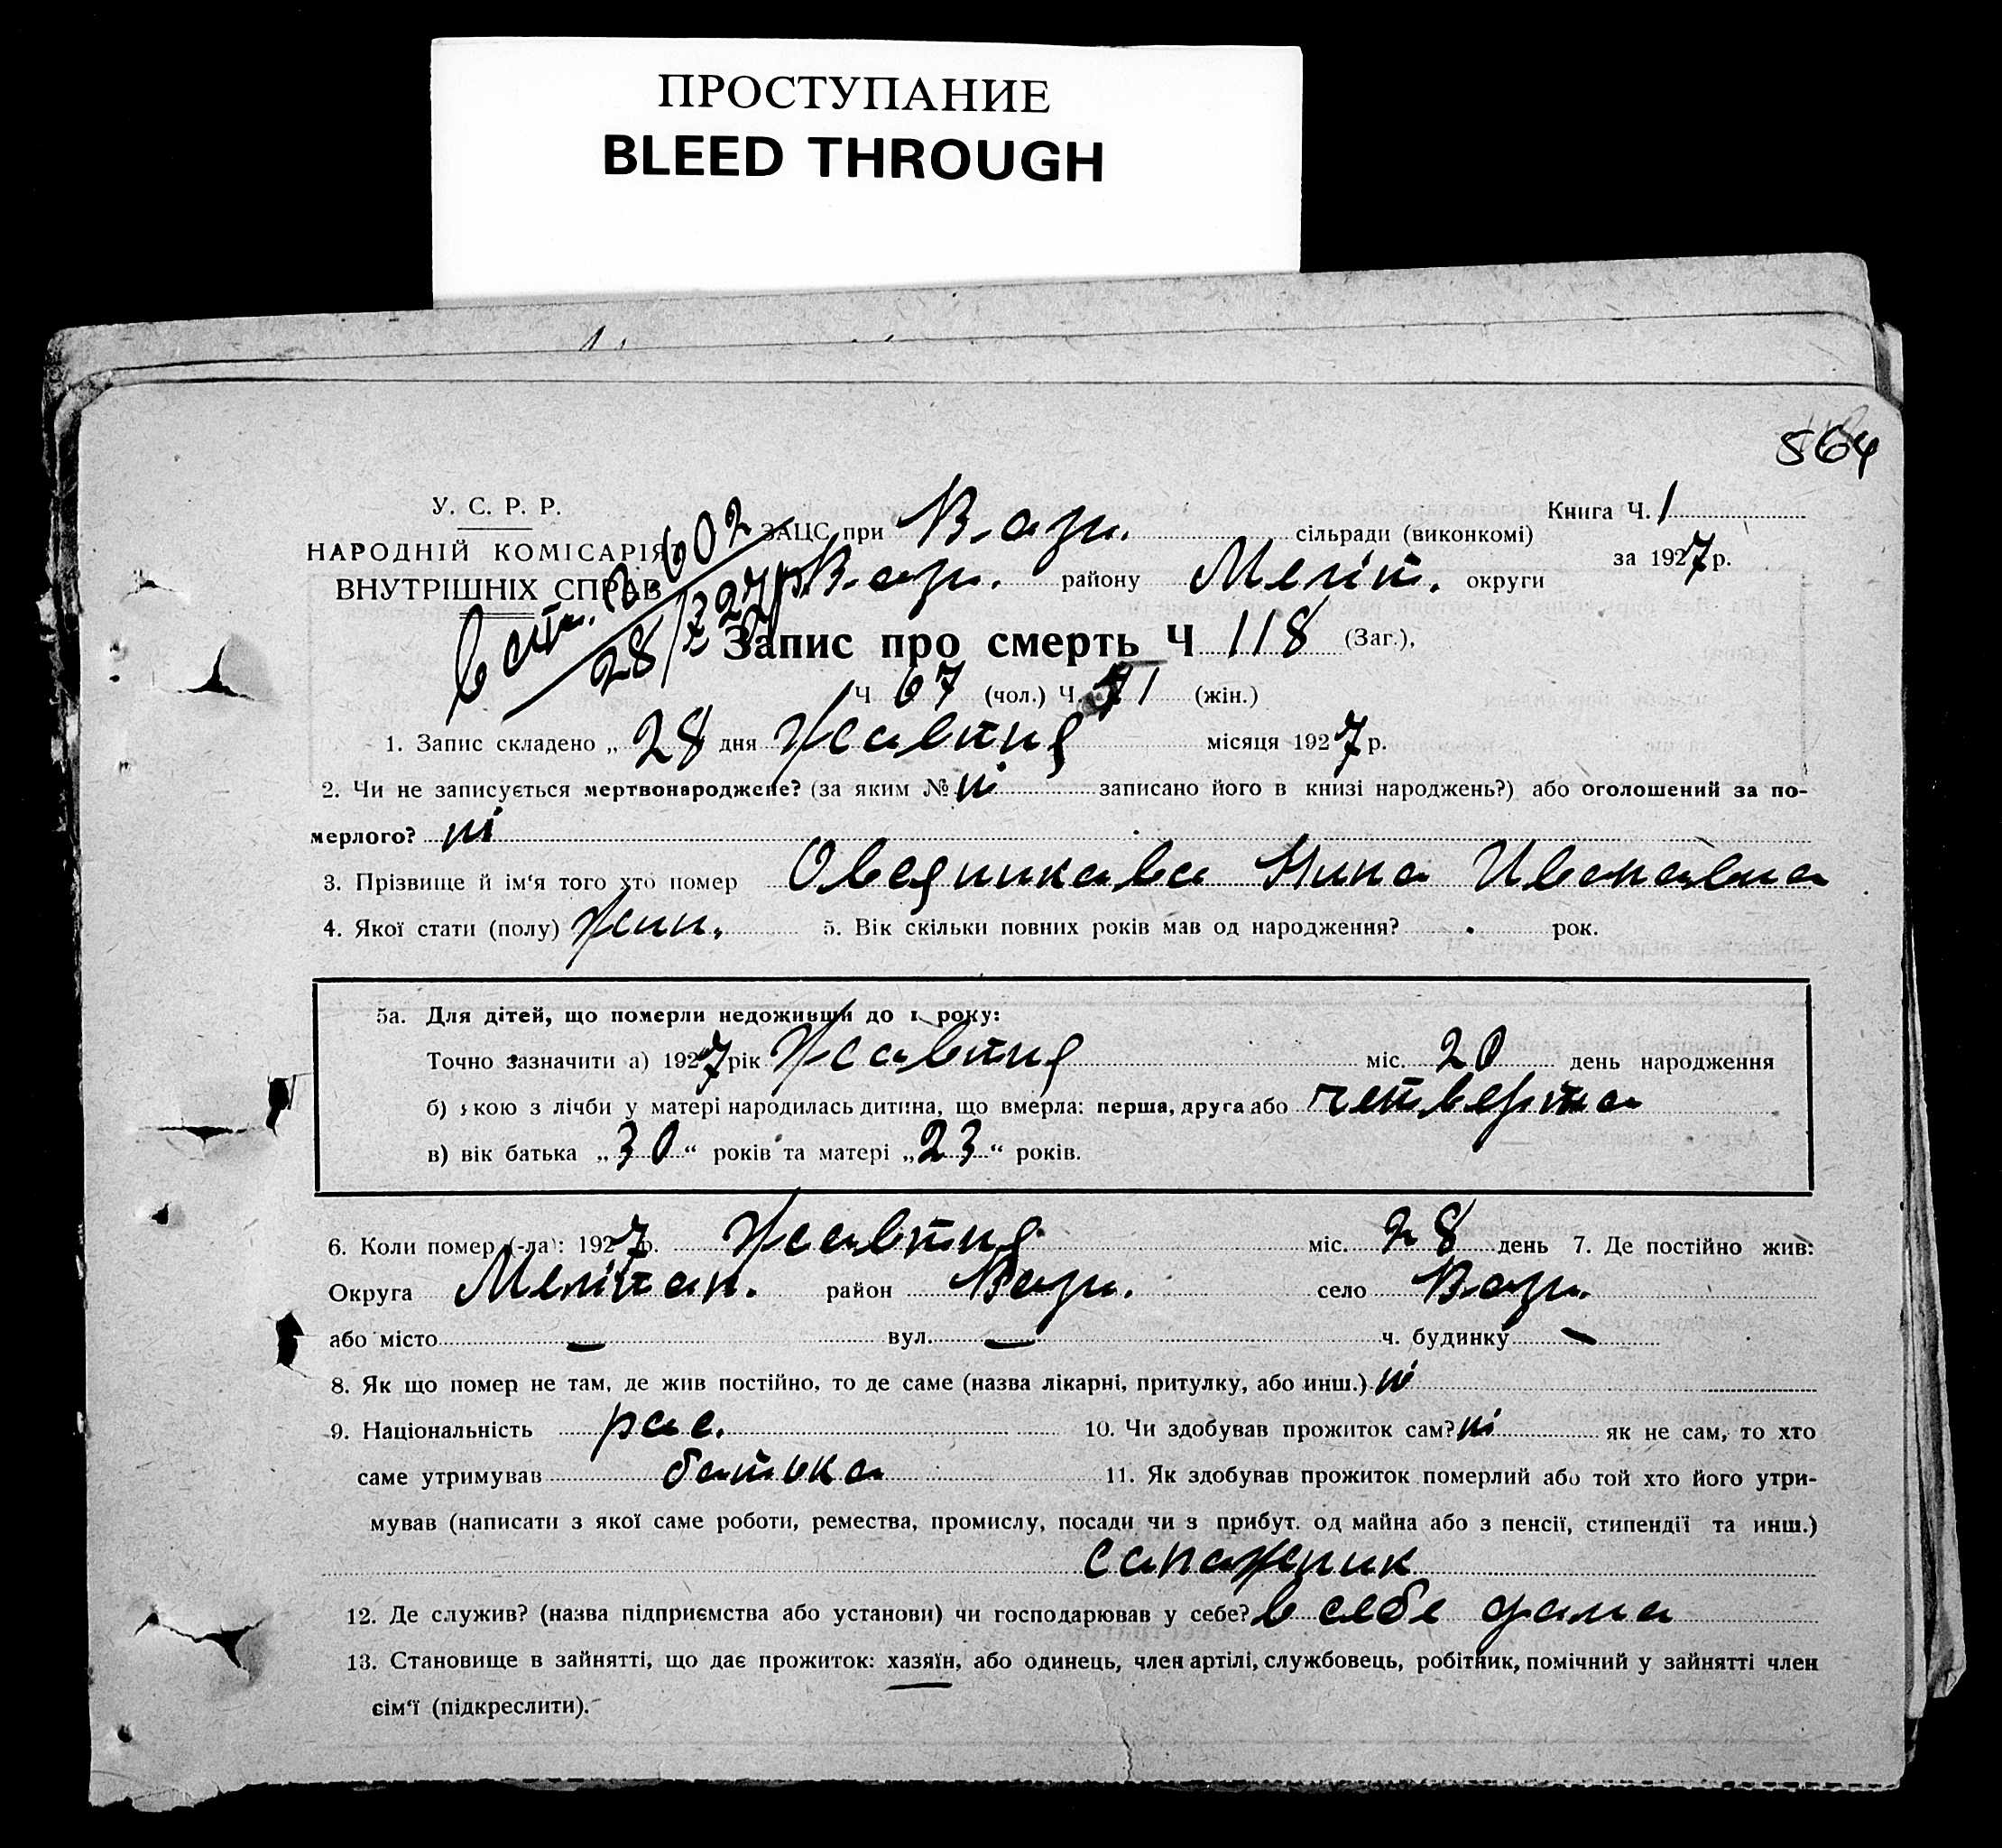 ПРОСТУПАНИЕ
BLEED THROUGH
564
У. С. Р. Р.
НАРОДНІЙ КОМІСАРІЯ
ВНУТРІШНІХ СПРАВ
602
28/X 27р
ЗАЦС при сільради (виконкомі)
Книга Ч. 1
за 1927 р.
району Меліт. округи
Запис про смерть Ч 118 (Заг.),
Ч 67 (чол.) Ч. 71 (жін.)
1. Запис складено „ 28 дня Жавтня місяця 1927 р.
2. Чи не записується мертвонароджене? (за яким № ні записано його в книзі народжень?) або оголошений за по-
мерлого? ні
3. Прізвище й ім‘я того хто помер Овсяникава Нина Иванавна
4. Якої стати (полу) Жин. 5. Вік скільки повних років мав од народження? рок.
5а. Для дітей, що померли недоживши до 1 року:
Точно зазначити а) 1927 рік Жавтня міс. 20 день народження
б) якою з лічби у матері народилась дитина, що вмерла: перша, друга або четверта
в) вік батька „ 30 “ років та матері „ 23 “ років.
6. Коли помер (-ла): 1927 р. Жавтня міс. 28 день 7. Де постійно жив:
Округа Меліпап. район село
або місто — вул. — ч. будинку —
8. Як що помер не там, де жив постійно, то де саме (назва лікарні, притулку, або инш.) ні
9. Національність рас. 10. Чи здобував прожиток сам? ні як не сам, то хто
саме утримував батька 11. Як здобував прожиток померлий або той хто його утри-
мував (написати з якої саме роботи, ремества, промислу, посади чи з прибут. од майна або з пенсії, стипендії та инш.)
сапажник
12. Де служив? (назва підприємства або установи) чи господарював у себе? в себе дома
13. Становище в зайнятті, що дає прожиток: хазяїн, або одинець, член артілі, службовець, робітник, помічний у зайнятті член
сім‘ї (підкреслити).